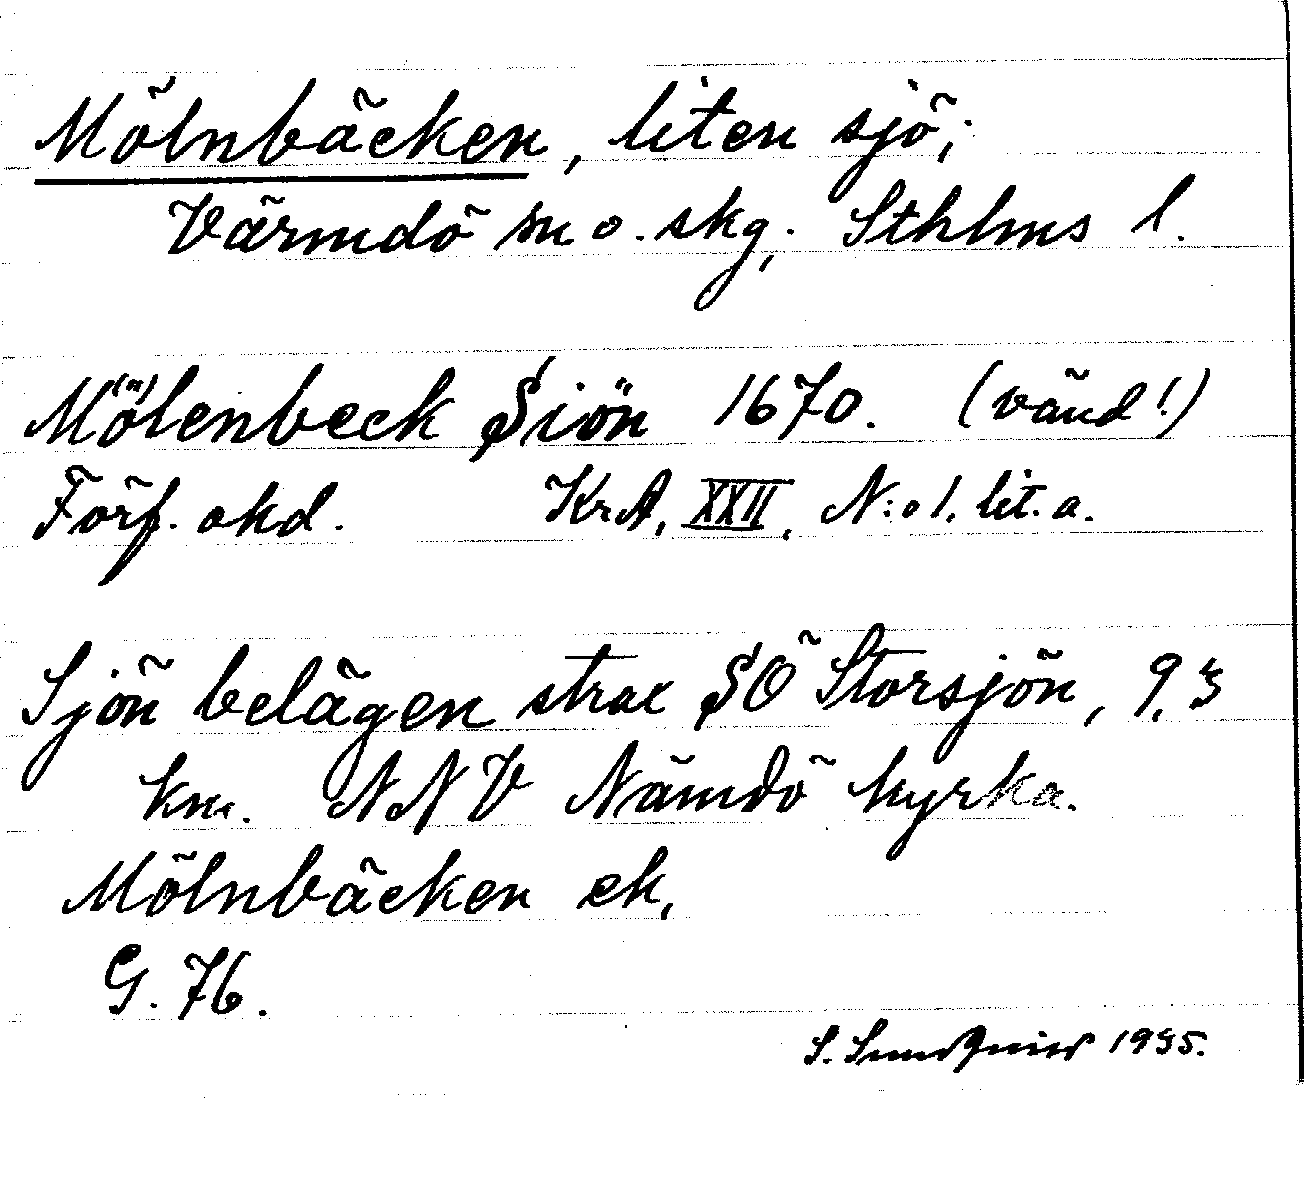 Mölnbäcken, liten sjö;
Värmdö sn o. skg; Sthlms l.
Mölenbeck Siön 1670. (vänd!)
Förf. okd. KrA, XXII, N:o 1. lit. a.
Sjön belägen strax SÖ Storsjön, 9,3
km. NNV Nämdö kyrka.
Mölnbäcken ek,
G. 76.
S. 1935.